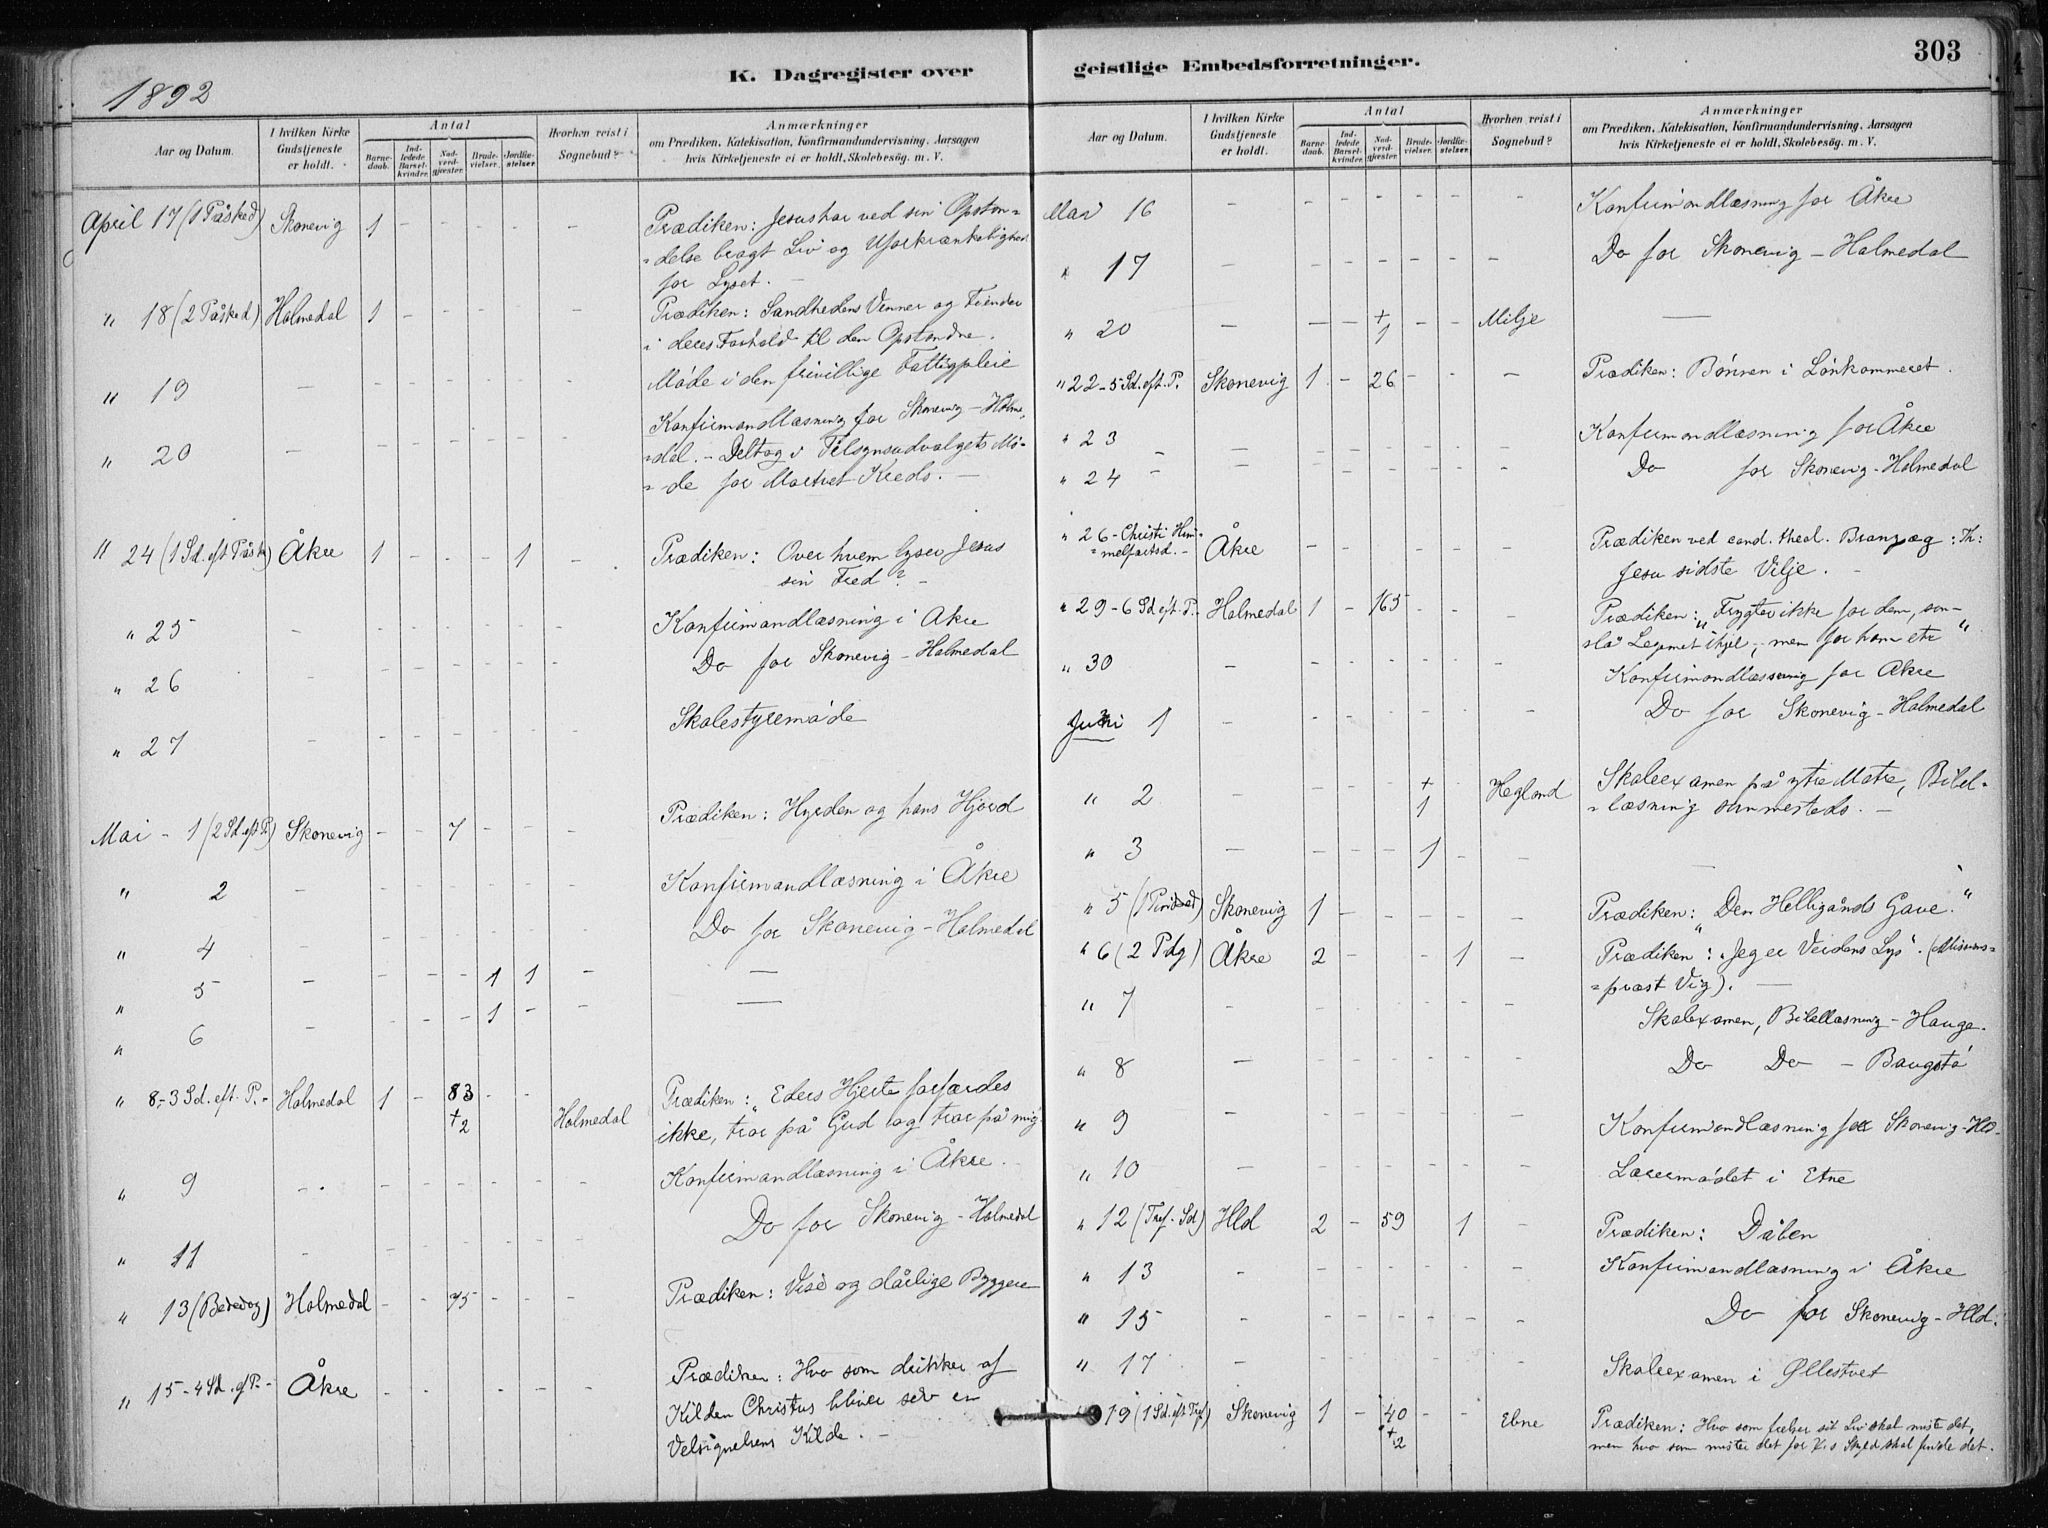 303
1892
K. Dagregister over geistlige Embedsforretninger.
Aar og Datum.
I hvilken Kirke Gudstjeneste er holdt.
Antal
Barnedaab.
Indledede Barselkvinder.
Nadverdgjester.
Brudevielser.
Jordfæstelser.
Hvorhen reist i Sognebud?
Anmærkninger
om Prædiken, Katekisation, Konfirmandundervisning, Aarsagen
hvis Kirketjeneste ei er holdt, Skolebesøg. m. V.
April 17 (1 Påsked) Skonevig 1 - - - - - Prædiken: Jesus har ved sin Opstan=
=delse bragt Liv og Uforkrænkelighed
for Lyset. -
" 18 (2 Påsked) Holmedal 1 - - - - - Prædiken: Sandhedens Venner og Fiender
i deres Forhold til den Opstandne.
" 19 - - - - - - - Møde i den frivillige Fattigpleie
" 20 - - - - - - - Konfirmandlæsning for Skonevig - Holme=
=dal. - Deltog i Tilsynsudvalgets Mø=
=de for Martvet Kreds. -
" 24 (1 Sd. eft Påske) Åkre 1 - - - 1 - Prædiken: Over hvem lyser Jesus
sin Fred? -
" 25 - - - - - - - Konfirmandlæsning i Åkre
" 26 - - - - - - - Do for Skonevig - Holmedal
" 27 - - - - - - - Skolestyremøde
Mai - 1 (2 Sd eft P) Skonevig - - 7 - - - Prædiken: Hyrden og hans Hjord
" 2 - - - - - - - Konfirmandlæsning i Åkre
" 4 - - - - - - - Do for Skonevig - Holmedal
" 5 - - - - 1 1 - -
" 6 - - - - 1 - - -
" 8 - 3 Sd. eft. P. - Holmedal 1 - 83 - - Prædiken: "Eders Hjerte forfærdes
+2 Holmedal ikke, tror på Gud og tror på mig"
" 9 - - - - - - - Konfirmandlæsning i Åkre.
" 11 - - - - - - - Do for Skonevig - Holmedal
" 13 (Bededag) Holmedal - - 75 - - - Prædiken: Vise og dårlige Byggere
" 15 - 4 Sd. ef P. - Åkre - - - - - - Prædiken: Hvo som drikker af
Kilden Christus bliver selv en
Velsignelsens Kilde. -
Aar og Datum.
I hvilken Kirke Gudstjeneste er holdt.
Antal
Barnedaab.
Indledede Barselkvinder.
Nadverdgjester.
Brudevielser.
Jordfæstelser.
Hvorhen reist i Sognebud?
Anmærkninger
om Prædiken, Katekisation, Konfirmandundervisning, Aarsagen
hvis Kirketjeneste ei er holdt, Skolebesøg. m. V.
Mai 16 - - - - - - - Konfirmandlæsning for Åkre
" 17 - - - - - - - Do for Skonevig - Holmedal
" 20 - - - +1 - - Milje -
" 22 - 5 Sd. eft. P. Skonevig 1 - 26 - - - Prædiken: Bønnen i Lønkammeret.
" 23 - - - - - - - Konfirmandlæsning for Åkre
" 24 - - - - - - - Do for Skonevig - Holmedal
" 26 - Christi Him=
=melfartsd. - Åkre - - - - - - Prædiken ved cand. theol. Branzæg: Th:
Jesu sidste Vilje. -
" 29 - 6 Sd eft. P. - Holmedal 1 - 165 - - - Prædiken: "Frygter ikke for dem, som
slå Legemet ihjel, men for ham etc"
" 30 - - - - - - - Konfirmandlæsning for Åkre
Juni 1 - - - - - - - Do for Skonevig - Holmedal
" 2 - - - - +1 - Hegland Skoleexamen på ytre Matre, Bibel=
=læsning sammesteds. -
" 3 - - - - 1 - - -
" 5 (1 Pindsed) Skonevig 1 - - - - - Prædiken: "Den Helligånds Gave."
" 6 (2 Pdg) Åkre 2 - - - 1 - Prædiken: "Jeg er Verdens Lys". (Missions=
=præst Vig). -
" 7 - - - - - - - Skolexamen, Bibellæsning - Hauge.
" 8 - - - - - - - Do Do - Baugstø
" 9 - - - - - - - Konfirmandlæsning for Skonevig - Hld -
" 10 - - - - - - - Lærermødet i Etne
" 12 (Tref. Sd) Hld 2 - 59 - 1 - Prædiken: Dåben
" 13 - - - - - - - Konfirmandlæsning i Åkre
" 15 - - - - - - - Do for Skonevig - Hld.
" 17 - - - - - - - Skoleexamen i Øllestvet
" 19 (1 Sd. eft Tref) Skonevig 1 - 40 - - Ebne Prædiken: Hvo som frelser sit Liv skal miste det,
+2 men hvo som mister det for Skyld skal finde det.